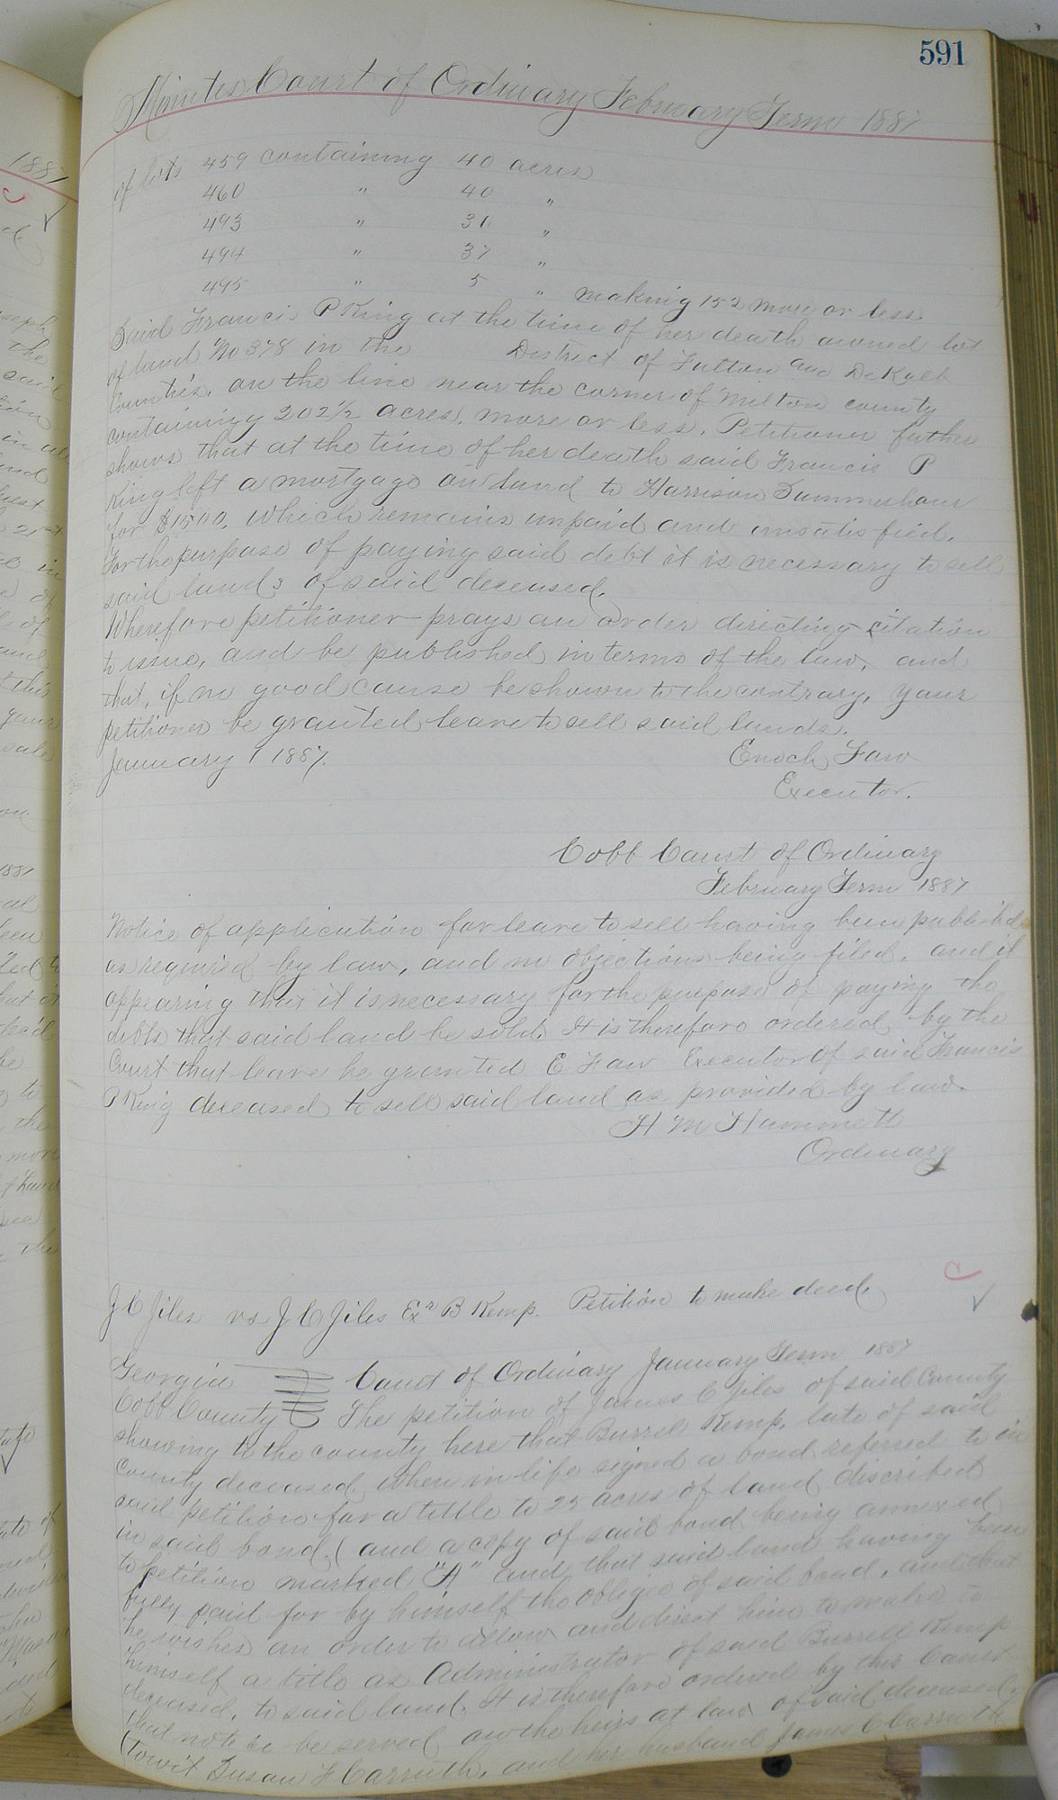 591
Minutes Court of Ordinary February Term 1887
of lots 459 containing 40 acres
460 " 40 "
493 " 31 "
494 " 37 "
495 " 5 " making 152 more or less
Said Francis P King at the time of her death owned lot
of land No 378 in the District of Fulton and DeKalb
Counties, on the line near the corner of Milton county
containing 202 1/2 acres, more or less. Petitioner further
shows that at the time of her death said Francis P
King left a mortgage on land to Harrison Summerhour
for $1500, which remains unpaid and unsatisfied.
For the purpose of paying said debt it is necessary to sell
said lands of said deceased.
Wherefore petitioner prays an order directing citation
to issue, and be published in terms of the law, and
that, if no good cause be shown to the contrary, your
petitioner be granted leave to sell said lands.
January 1 1887. Enoch Faw
Executor.
Cobb Court of Ordinary
February Term 1887
Notice of application for leave to sell having been published
as required by law, and no objections being filed, and it
appearing that it is necessary for the purpose of paying the
debts that said land be sold. It is therefore ordered by the
Court that leave be granted E Faw Executor of said Francis
P King deceased to sell said land as provided by law.
H M Hammett
Ordinary
J C Jiles vs J C Jiles Exr B Kemp. Petition to make deed.
Georgia Court of Ordinary January Term 1887
Cobb County The petition of James C Jiles of said County
showing to the county here that Burrel Kemp, late of said
County deceased, when in life signed a bond referred to in
said petition for a tittle to 25 acres of land discribed
in said bond, (and a copy of said bond being annexed
to petition marked "A" and that said land having been
fully paid for by himself the obligee of said bond, and that
he wishes an order to allow and direct him to make to
himself a title as Administrator of said Burrell Kemp
deceased, to said land. It is therefore ordered by this Court
that notice be served on the heirs at law of said deceased,
(towit Susan F Carruth, and her husband James C Carruth